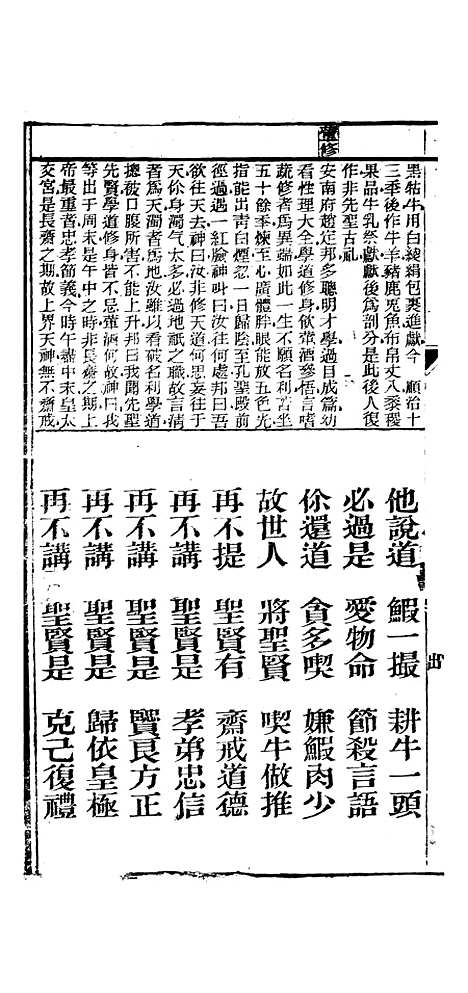 葷修
黑牯牛用白綾絹包裹進獻今 順治十
三季後作牛羊豬鹿兎魚布帛丈八黍稷
果品牛乳祭獻獻後為剖分是此後人復
作非先聖古禮
安南府趙定邦多聰明才學過目成篇幼
看性理大全學道修身飲葷酒參悟言嗜
蔬修者爲異端如此一生不願名利苦坐
五十餘季煉至心廣體胖眼能放五色光
指能出青白煙忽一日歸陰至孔聖殿前
徑過遇一紅臉神叫曰汝往何處邦曰吾
欲往天去神曰汝非修天道何思妄往于
天伱身濁气太多必過地祇之職故言清
者爲天濁者爲地汝雖以看破名利學道
摠被口腹所害不能上升邦曰我聞先聖
先賢學道修身皆不忌葷酒何故神曰我
等出于周末是午中之時非長齋之期上
帝最重者忠孝節義今時午盡中末皇太
交宮是長齋之期故上界天神無不齋戒
他說道 鰕一撮 耕牛一頭
必過是 愛物命 節殺言語
伱還道 貪多喫 嫌鰕肉少
故世人 將聖賢 喫牛做推
再不提 聖賢有 齋戒道德
再不講 聖賢是 孝弟忠信
再不講 聖賢是 賢良方正
再不講 聖賢是 歸依皇極
再不講 聖賢是 克己復禮